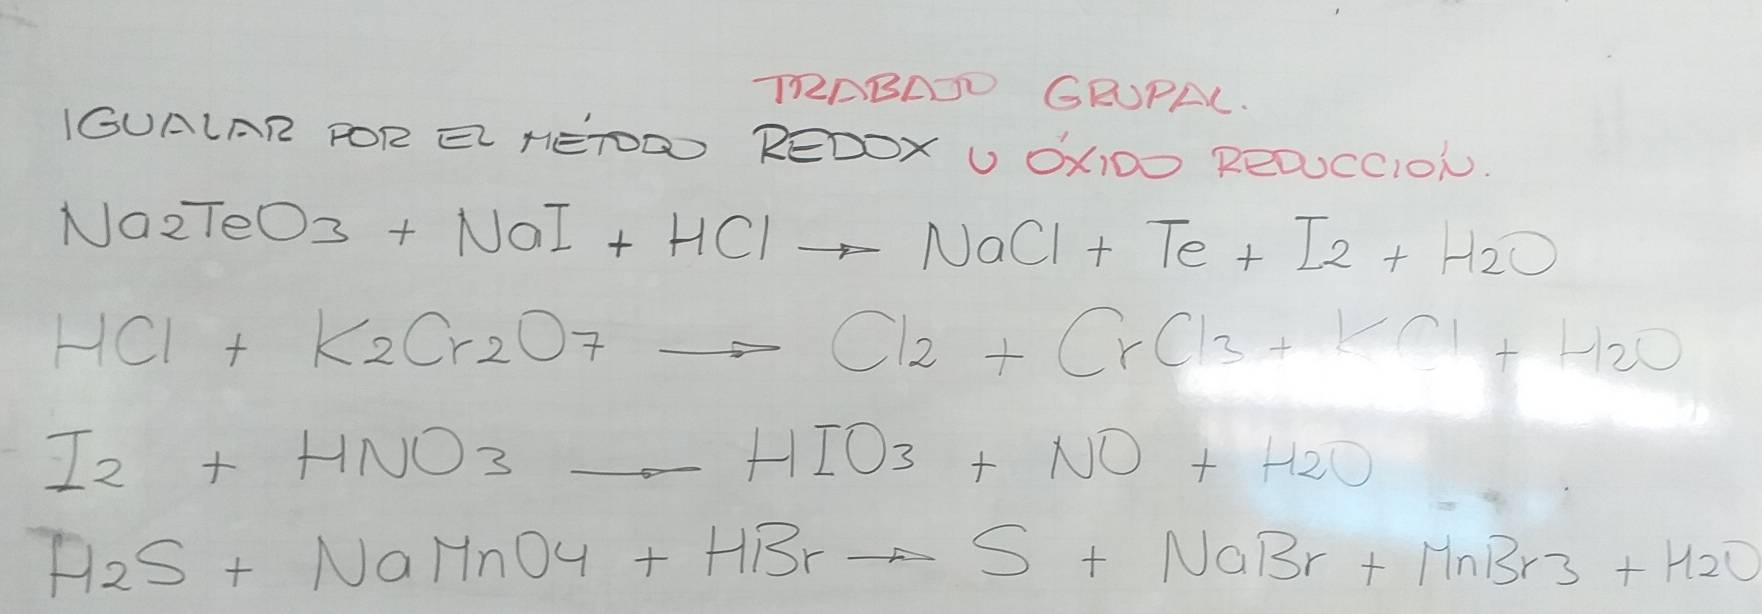 TRABAJO GRUPAL.
IGUALAR POR EL MÉTODO REDOX U ÓXIDO REDUCCIÓN.
Na2TeO3 + NaI + HCl → NaCl + Te + I2 + H2O
HCl + K2Cr2O7 → Cl2 + CrCl3 + KCl + H2O
I2 + HNO3 → HIO3 + NO + H2O
H2S + NaMnO4 + HBr → S + NaBr + MnBr3 + H2O